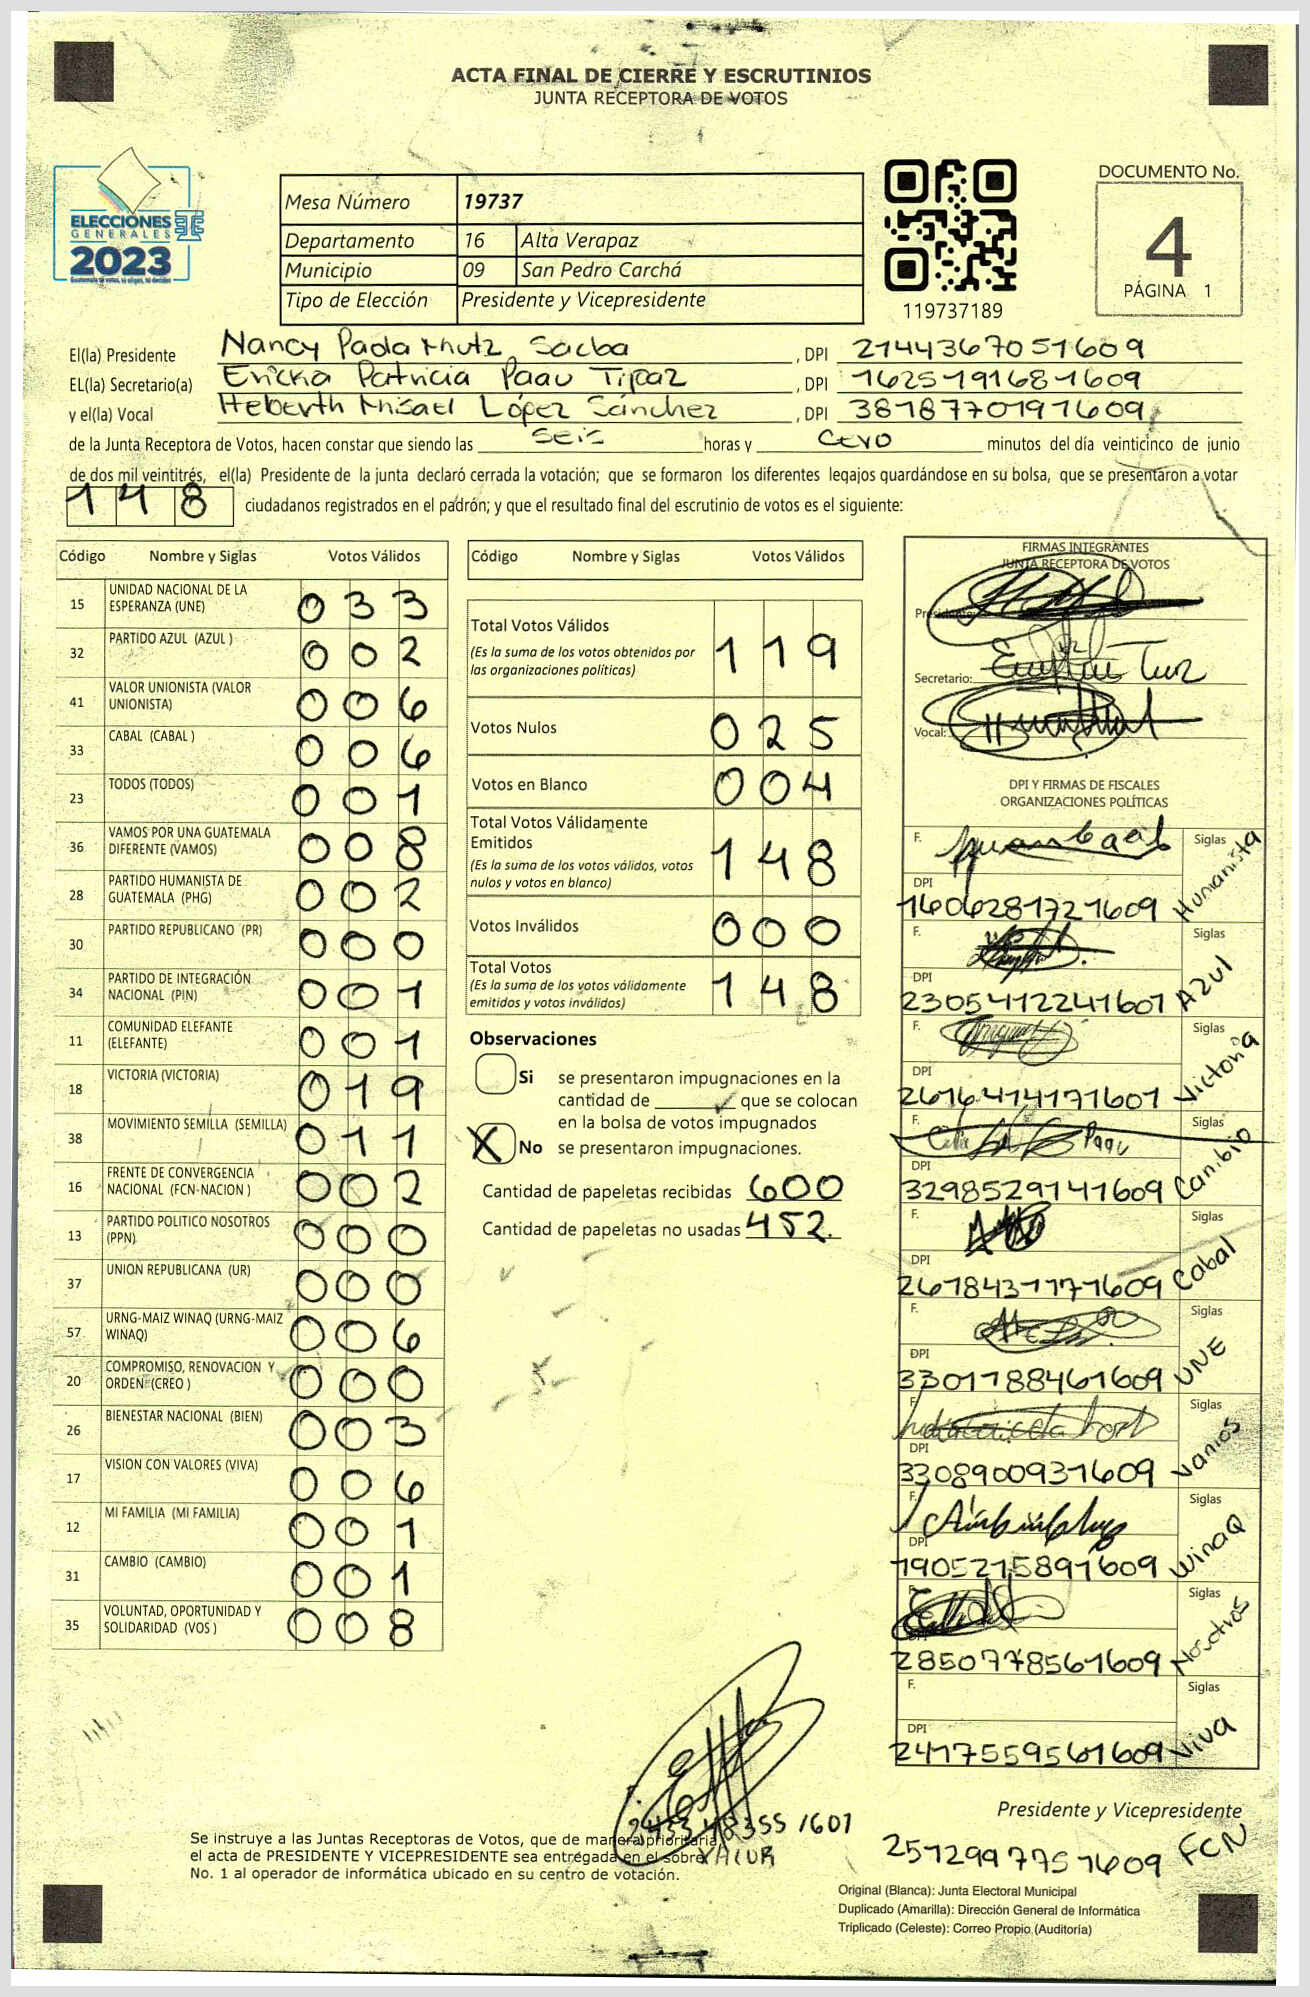 ACTA FINAL DE CIERRE Y ESCRUTINIOS
JUNTA RECEPTORA DE VOTOS
ELECCIONES
GENERALES
2023
Mesa Número 19737
Departamento 16 Alta Verapaz
Municipio 09 San Pedro Carchá
Tipo de Elección Presidente y Vicepresidente
119737189
DOCUMENTO No.
4
PÁGINA 1
El(la) Presidente Nancy Paola Mutz Sacba, DPI 2144367051609
EL(la) Secretario(a) Ericka Patricia Paau Tipaz, DPI 1625191681609
y el(la) Vocal Heberth Misael López Sánchez, DPI 3818770191609
de la Junta Receptora de Votos, hacen constar que siendo las seis horas y cero minutos del día veinticinco de junio
de dos mil veintitrés, el(la) Presidente de la junta declaró cerrada la votación; que se formaron los diferentes legajos guardándose en su bolsa, que se presentaron a votar
148 ciudadanos registrados en el padrón; y que el resultado final del escrutinio de votos es el siguiente:
Código Nombre y Siglas Votos Válidos
15 UNIDAD NACIONAL DE LA ESPERANZA (UNE) 033
32 PARTIDO AZUL (AZUL ) 002
41 VALOR UNIONISTA (VALOR UNIONISTA) 006
33 CABAL (CABAL ) 006
23 TODOS (TODOS) 001
36 VAMOS POR UNA GUATEMALA DIFERENTE (VAMOS) 008
28 PARTIDO HUMANISTA DE GUATEMALA (PHG) 002
30 PARTIDO REPUBLICANO (PR) 000
34 PARTIDO DE INTEGRACIÓN NACIONAL (PIN) 001
11 COMUNIDAD ELEFANTE (ELEFANTE) 001
18 VICTORIA (VICTORIA) 019
38 MOVIMIENTO SEMILLA (SEMILLA) 011
16 FRENTE DE CONVERGENCIA NACIONAL (FCN-NACION ) 002
13 PARTIDO POLITICO NOSOTROS (PPN) 000
37 UNION REPUBLICANA (UR) 000
57 URNG-MAIZ WINAQ (URNG-MAIZ WINAQ) 006
20 COMPROMISO, RENOVACION Y ORDEN (CREO ) 000
26 BIENESTAR NACIONAL (BIEN) 003
17 VISION CON VALORES (VIVA) 006
12 MI FAMILIA (MI FAMILIA) 001
31 CAMBIO (CAMBIO) 001
35 VOLUNTAD, OPORTUNIDAD Y SOLIDARIDAD (VOS ) 008
Código Nombre y Siglas Votos Válidos
Total Votos Válidos 119
(Es la suma de los votos obtenidos por
las organizaciones políticas)
Votos Nulos 025
Votos en Blanco 004
Total Votos Válidamente
Emitidos 148
(Es la suma de los votos válidos, votos
nulos y votos en blanco)
Votos Inválidos 000
Total Votos 148
(Es la suma de los votos válidamente
emitidos y votos inválidos)
Observaciones
Si se presentaron impugnaciones en la
cantidad de ______ que se colocan
en la bolsa de votos impugnados
X No se presentaron impugnaciones.
Cantidad de papeletas recibidas 600
Cantidad de papeletas no usadas 452.
FIRMAS INTEGRANTES
JUNTA RECEPTORA DE VOTOS
Presidente:
Secretario:
Vocal:
DPI Y FIRMAS DE FISCALES
ORGANIZACIONES POLÍTICAS
F. Siglas Humanista
DPI 1606281721609
F. Siglas Azul
DPI 2305412241601
F. Siglas Victoria
DPI 2616414171601
F. Siglas Cambio
DPI 3298529141609
F. Siglas Cabal
DPI 2618431171609
F. Siglas UNE
DPI 3301188461609
F. Siglas Vamos
DPI 3308900931609
F. Siglas WinaQ
DPI 1905215891609
F. Siglas Nosotros
DPI 2850778561609
F. Siglas Viva
DPI 2417559561609
Presidente y Vicepresidente
2512997751609 FCN
1601
VALOR
Se instruye a las Juntas Receptoras de Votos, que de manera prioritaria,
el acta de PRESIDENTE Y VICEPRESIDENTE sea entregada en el sobre
No. 1 al operador de informática ubicado en su centro de votación.
Original (Blanca): Junta Electoral Municipal
Duplicado (Amarilla): Dirección General de Informática
Triplicado (Celeste): Correo Propio (Auditoría)